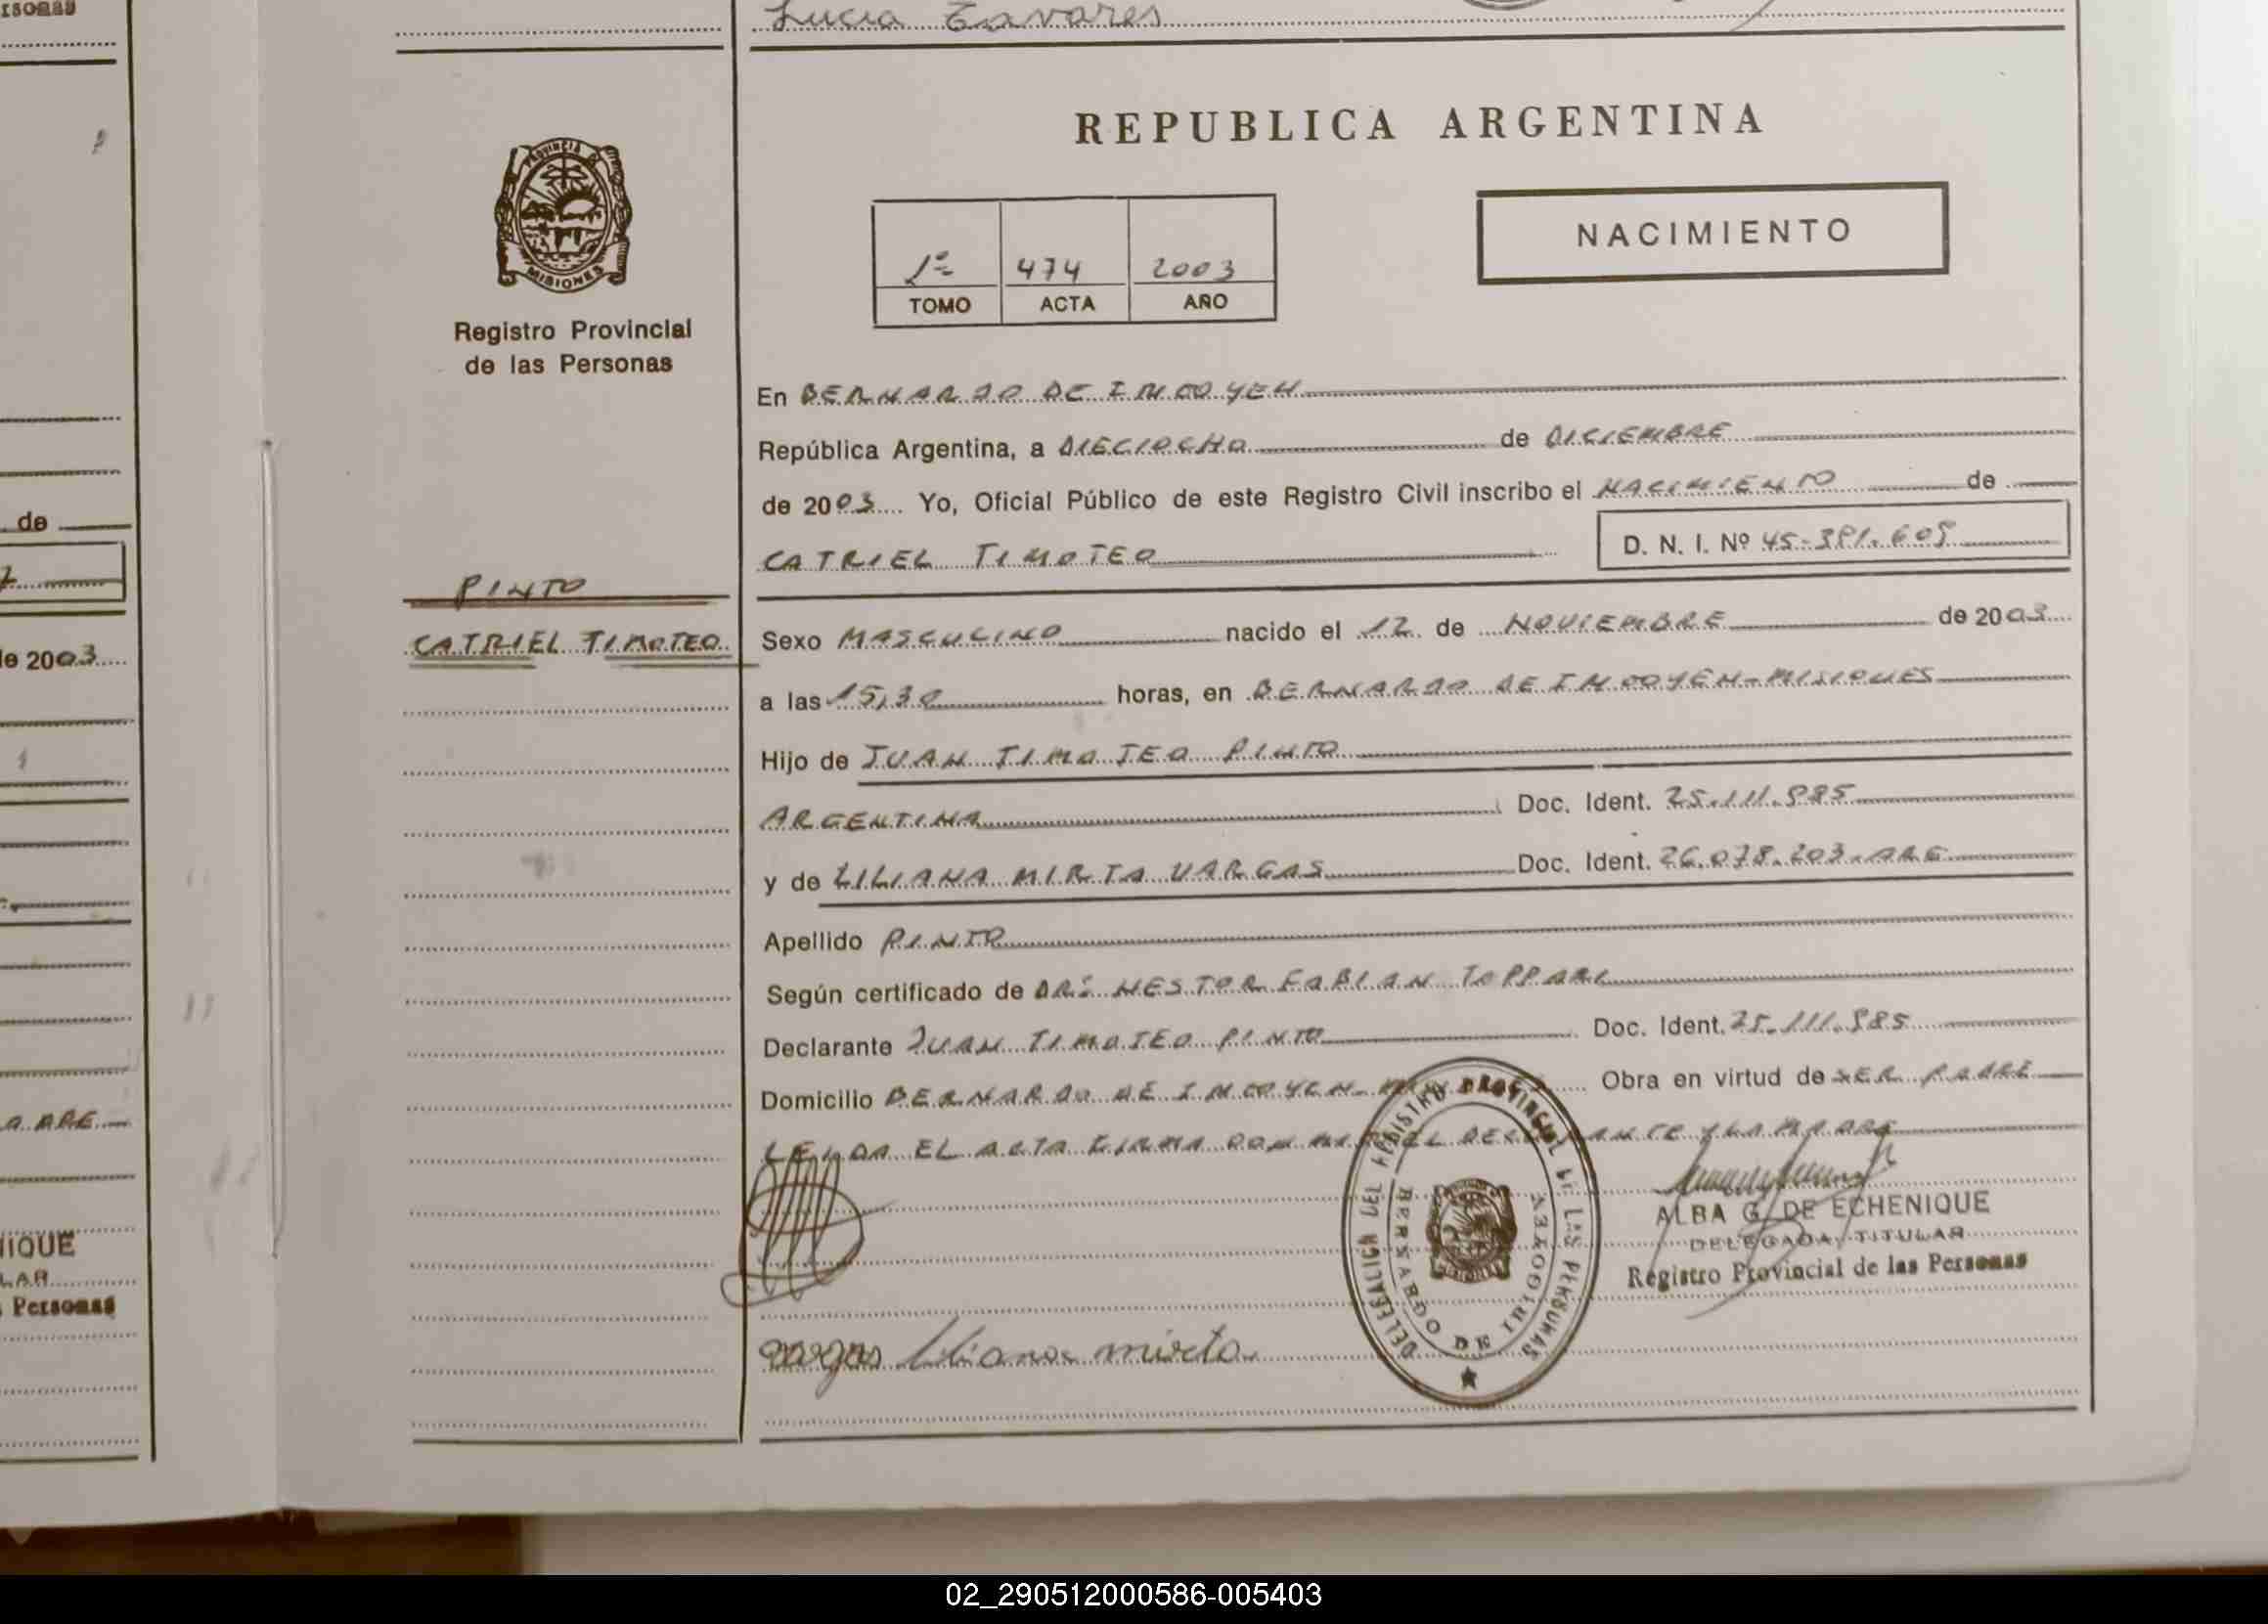 Lucia Tavares
REPUBLICA ARGENTINA
PROVINCIA DE MISIONES
Registro Provincial
de las Personas
1º 474 2003
TOMO ACTA AÑO
NACIMIENTO
En BERNARDO DE IRIGOYEN
República Argentina, a DIECIOCHO de DICIEMBRE
de 2003 Yo, Oficial Público de este Registro Civil inscribo el NACIMIENTO de
CATRIEL TIMOTEO D. N. I. Nº 45.381.609
PINTO
CATRIEL TIMOTEO
Sexo MASCULINO nacido el 12 de NOVIEMBRE de 2003
a las 15,30 horas, en BERNARDO DE IRIGOYEN-MISIONES
Hijo de JUAN TIMOTEO PINTO
ARGENTINA Doc. Ident. 25.111.985
y de LILIANA MIRTA VARGAS Doc. Ident. 26.078.203.ARG
Apellido PINTO
Según certificado de DR: NESTOR FABIAN TOPPARI
Declarante JUAN TIMOTEO PINTO Doc. Ident. 25.111.985
Domicilio BERNARDO DE IRIGOYEN Obra en virtud de SER PADRE
LEIDA EL ACTA FIRMA CON MIGO EL DECLARANTE Y LA MADRE
ALBA G. DE ECHENIQUE
DELEGADA TITULAR
Registro Provincial de las Personas
DELEGACION DEL REGISTRO PROVINCIAL DE LAS PERSONAS
BERNARDO DE IRIGOYEN
Vargas Liliana mirta
de
de 2003
NIQUE
LAR
Personas
02_290512000586-005403